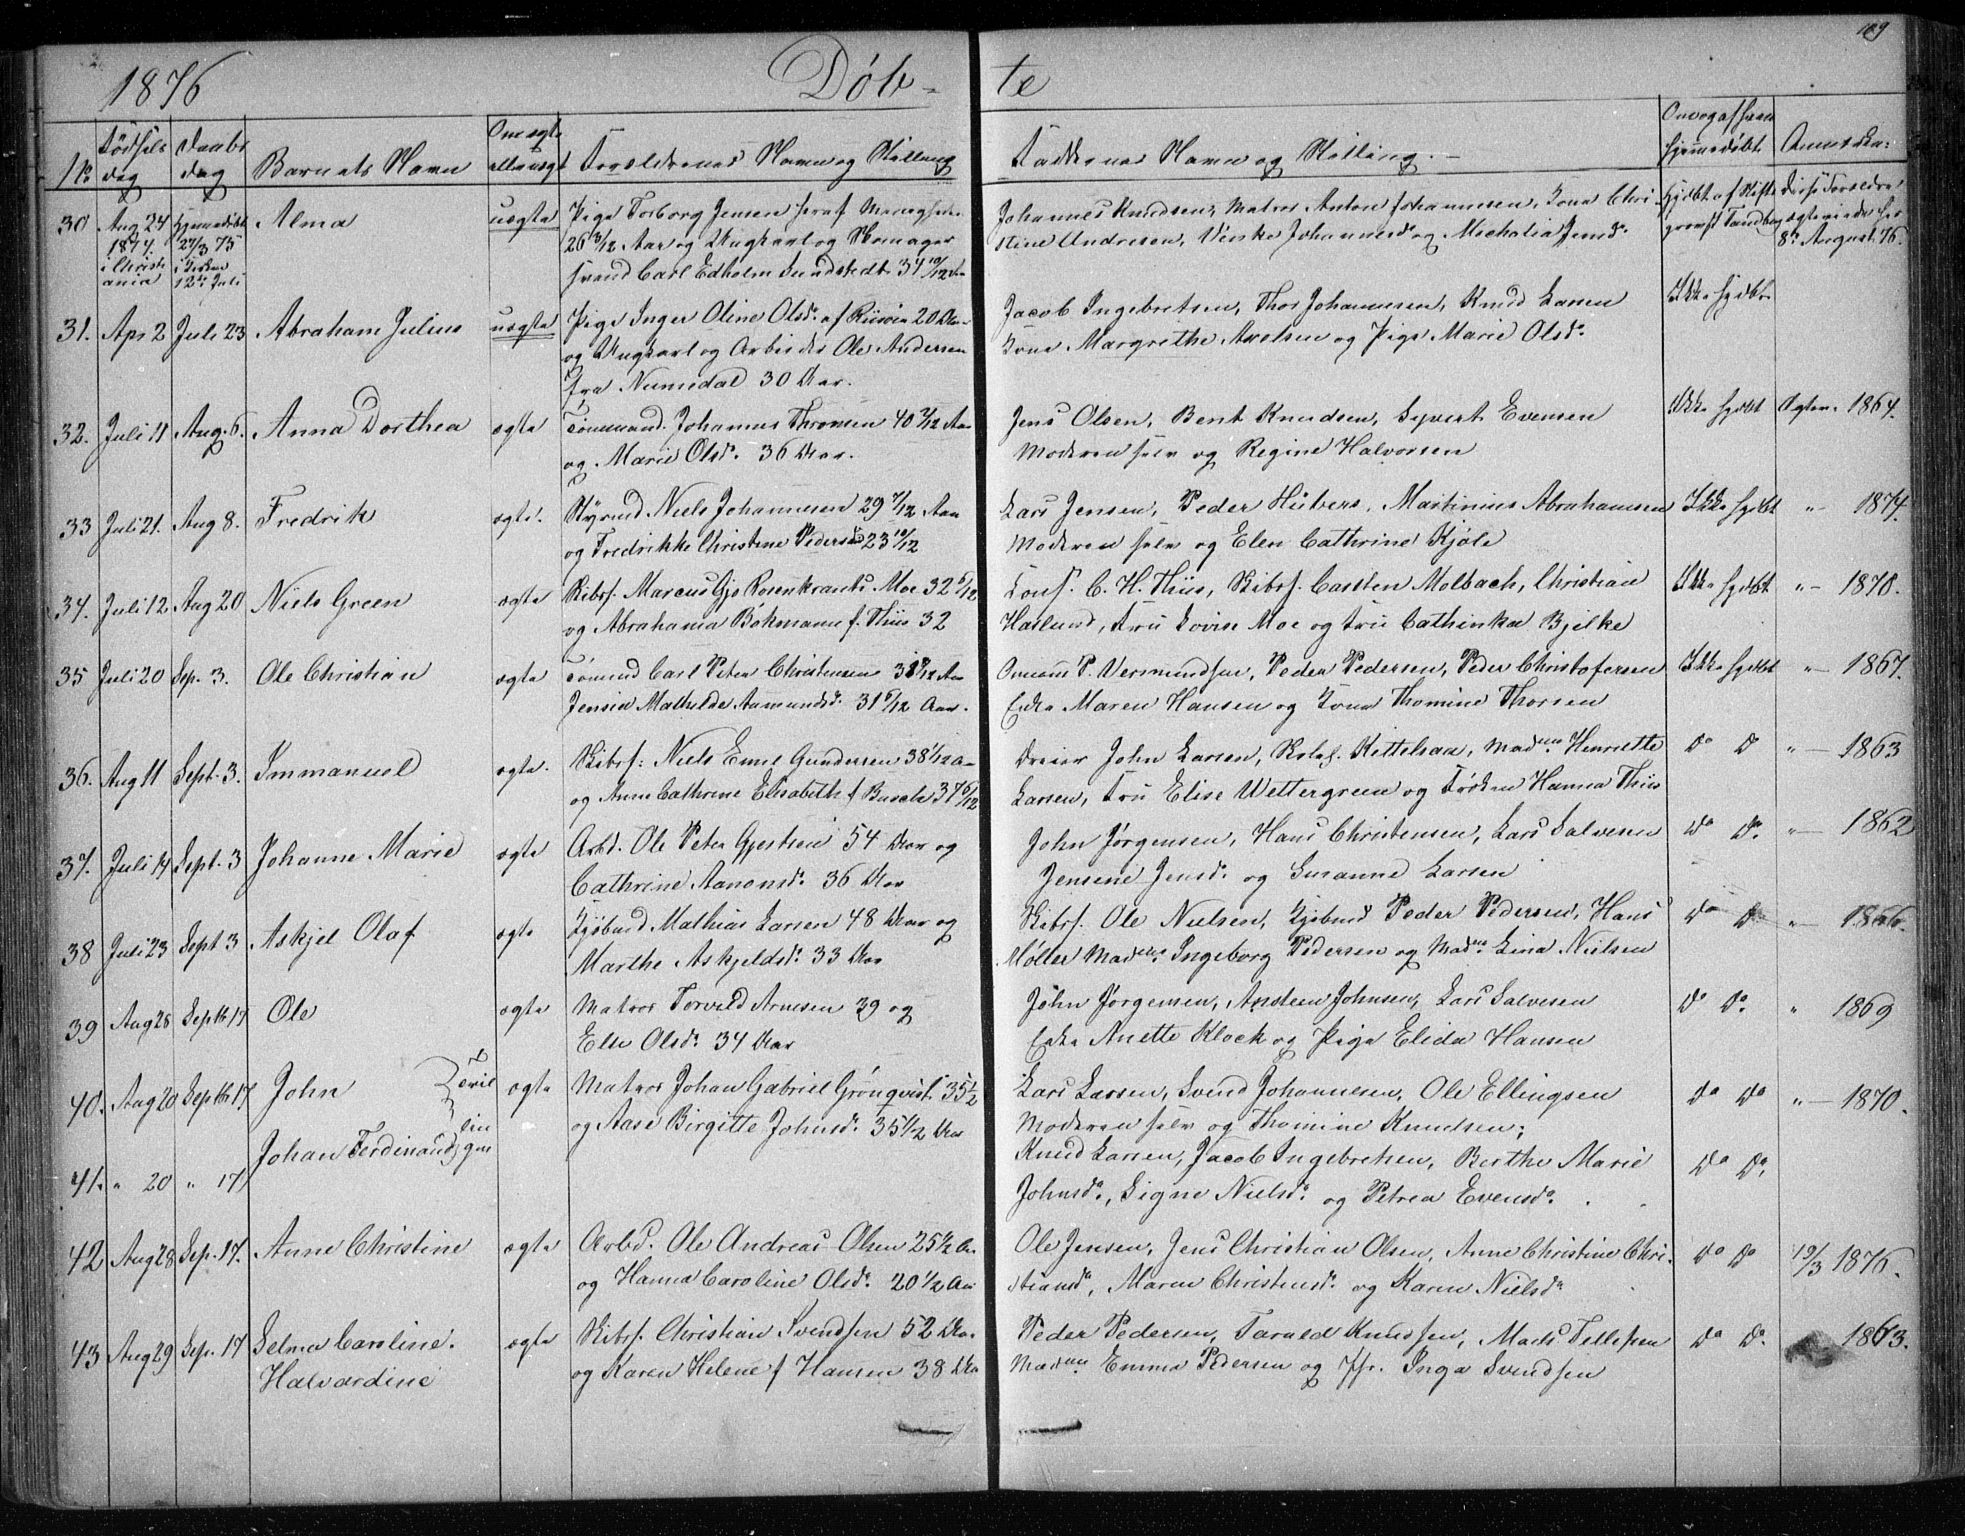 109
1876 Døb- te
No Fødsels dag Daabs dag Barnets Navn Om ægte eller uægte Forældrenes Navn og Stilling Faddernes Navn og Stilling. Anmærkn:
30 Aug 24 1874 i Christiania Hjemmedøbt 27/3 75 12te Juli Alma uægte Pige Torborg Jensen
26 3/12 Aar og Ungkarl og
Svend Carl Edholm Sundstedt 34 10/12
Johannes Knudsen, Matros Anton Johannesen, Kona Chri-
stine Andresen, Johannesd. og Michalia Jensd.
disse Forældre
8de August 76.
31. Apr 2 Juli 23 Abraham Julius uægte Pige Inger Oline Olsd. af Risøen 20 Aar
og Ungkarl og Arbeider Ole Andersen
fra Numedal 30 Aar.
Jacob Ingebretsen, Thor Johannesen, Knud Larsen
Kona Margrethe Axelsen og Pige Marie Olsd. Ikke hjdbt
32. Juli 11 Aug. 6. Anna Dorthea ægte Tømmermd. Johannes Thronsen 40 7/12 Aar
og Marie Olsd. 36 Aar.
Jens Olsen, Bent Knudsen, Syvert Evensen
Moderen selv og Regine Halvorsen Ikke hjdbt Ægtev. 1864.
33 Juli 21. Aug 8. Fredrik ægte. Styrmd Niels Johannesen 29 7/12 Aar
og Fredrikke Christine Pedersd 23 10/12
Lars Jensen, Peder Huberz, Martinius Abrahamsen
Moderen selv og Elen Cathrine Kjøle Ikke hjdbt " - 1874.
34. Juli 12 Aug 20 Niels Green ægte Skibsf. Marcus Gjo Rosenkrants Moe 32 5/12
og Abrahamia Bøkmann f. Thiis 32
Cons. C. H. Thiis, Skibsf. Carsten Molbach, Christian
Haslund, Fru Lovise Moe og Fru Cathinka Bjelke Ikke hjdbt " - 1870.
35 Juli 20 Sep. 3. Ole Christian ægte Tømmd Carl Peter Christensen
Jensia Mathilde Aamundsd. 31 5/12 Aar.
P. Vermundsen, Peder Pedersen, Peder Christofersen
Enke Maren Hansen og Kona Thomine Thorsen Ikke hjdbt " - 1867.
36. Aug 11 Sept. 3. Immanuel ægte. Skibsf: Niels Emil Gundersen 38 1/12 A
og Anne Cathrine Elisabeth f Busch 37 6/12
Dreier John Larsen, Kittelsen, Madme Henriette
Larsen, Fru Elise Wettergreen og Frøken Hanna Thiis Do Do " - 1863
37. Juli 14 Sept. 3 Johanne Marie ægte Arbd. Ole Peter Gjertsen 54 Aar og
Cathrine Aanonsd. 36 Aar
John Jørgensen, Hans Christensen, Lars Salvesen
Jensine Jensd. og Susanne Larsen Do Do. " - 1862
38 Juli 23 Sept 3 Askjel Olaf ægte Mathias Larsen 48 Aar og
Marthe Askjeldsd. 33 Aar
Skibsf. Ole Nielsen, Peder Pedersen, Hans
Møller Madme Ingeborg Pedersen og Madme Lina Nielsen Do Do " - 1866.
39 Aug 28 Septb 17 Ole ægte Matros Torvild Arnesen 39 og
Else Olsd. 34 Aar
John Jørgensen, Ansteen Johnsen, Lars Salvesen
Enke Anette Klock og Pige Elida Hansen Do Do. " 1869
40. Aug 20 Septb 17 John Tvillinger ægte Matros Johan Gabriel Grønqvist 35 1/2
og Aase Birgitte Johnsd. 35 1/2 Aar
Lars Larsen, Svend Johannesen, Ole Ellingsen
Moderen selv og Thomine Knudsen; Do Do " - 1870.
41. " 20 " 17 Johan Ferdinand
Knud Larsen, Jacob Ingebretsen, Berthe Marie
Johnsd., Signe Nielsd. og Petrea Evensd. Do Do.
42 Aug 28 Sep. 17. Anne Christine ægte Arbd. Ole Andreas Olsen 25 1/2 A.
og Hanna Caroline Olsd. 20 1/2 Aar
Ole Jensen, Jens Christian Olsen, Anne Christine Chri-
stiansd., Maren Christensd. og Karen Nielsd. Do Do 19/3 1876.
43 Aug 29 Sep. 17 Selma Caroline.
Halvardine ægte Skibsf. Christian Svendsen 52 Aar
og Karen Helene f Hansen 38 Aar
Peder Pedersen, Tarald Knudsen, Mads Tellefsen
Madme Emma Pedersen og Jfr. Inga Svendsen Do Do. 1863.